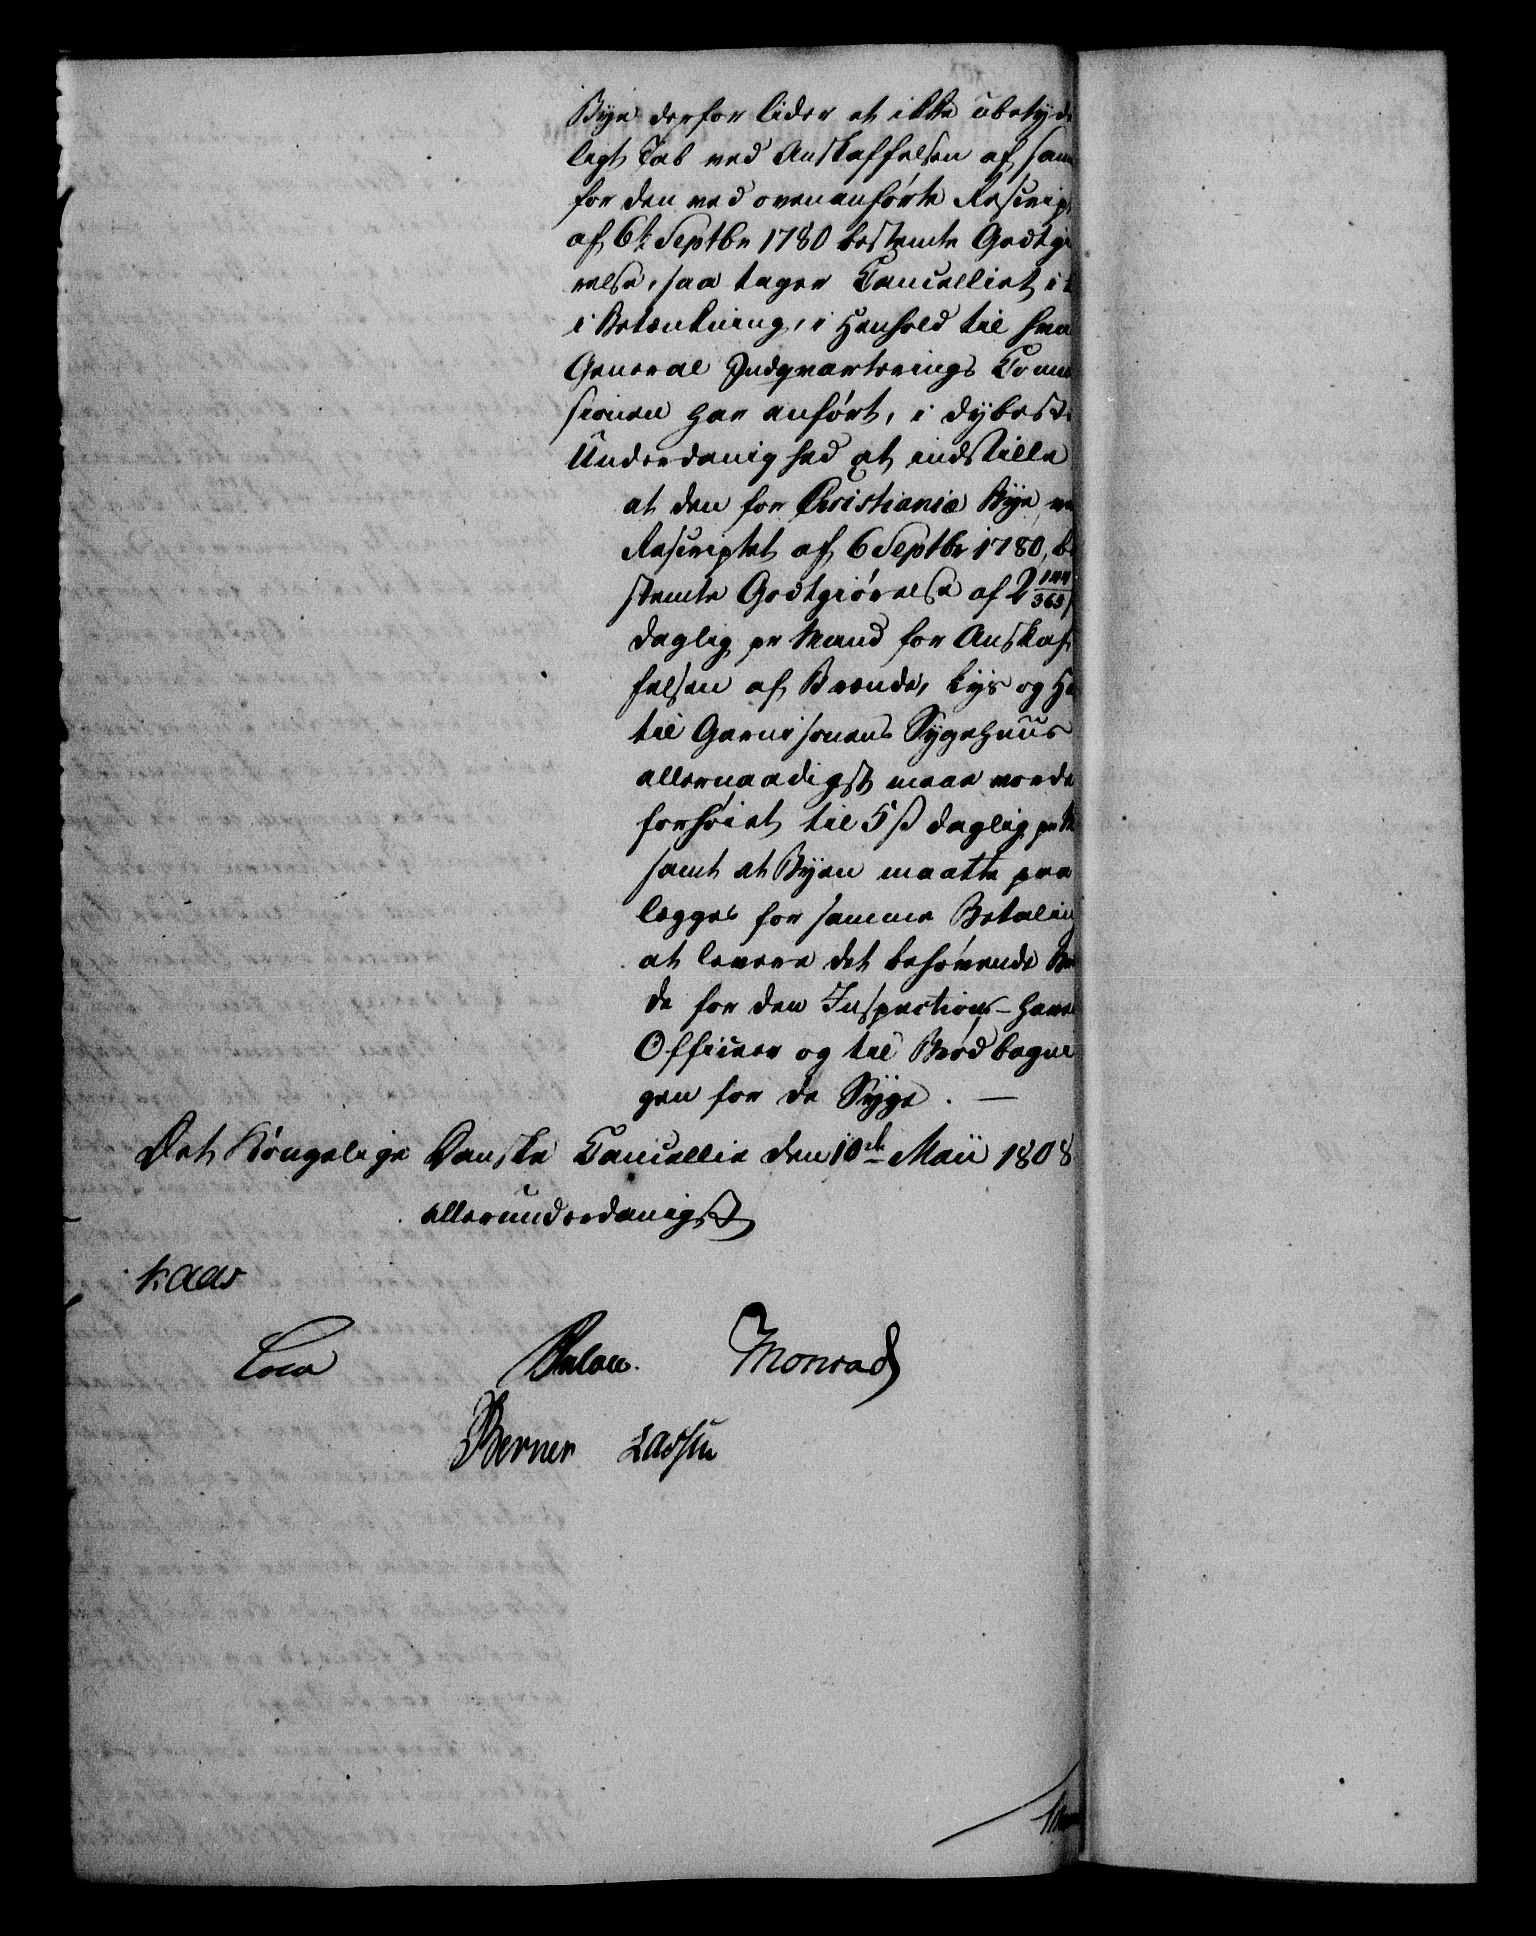 Bye derfor lider et ikke ubetyde
ligt Tab ved Anskaffelsen af sam
for den ved ovenanførte Rescrip
af 6te Septbr 1780 bestemte Godtgi
relse, saa tager Cancelliet i
i Betænkning, i Henhold til hva
General Indqvarterings Comm
sionen har anført, i dybeste
Underdanighed at indstille
at den for Christiania Bye ve
Rescriptet af 6 Septbr 1780, be
stemte Godtgiørelse af 2 144/365 s
daglig pr Mand for Anskaf
felsen af Brænde, Lys og H
til Garnisonens Sygehuus
allernaadigst maae vorde
forhöiet til 5 s daglig pr M
samt at Byen maatte paa
lægges for samme Betaling
at levere det behøvende Bræ
de for den Inspections-have
Officeer og til Brødbagnin
gen for de Syge. —
Det Kongelige Danske Cancellie den 10de Maii 1808
allerunderdanigst
Kaas
Bülow. Monrad
Berner Lassen